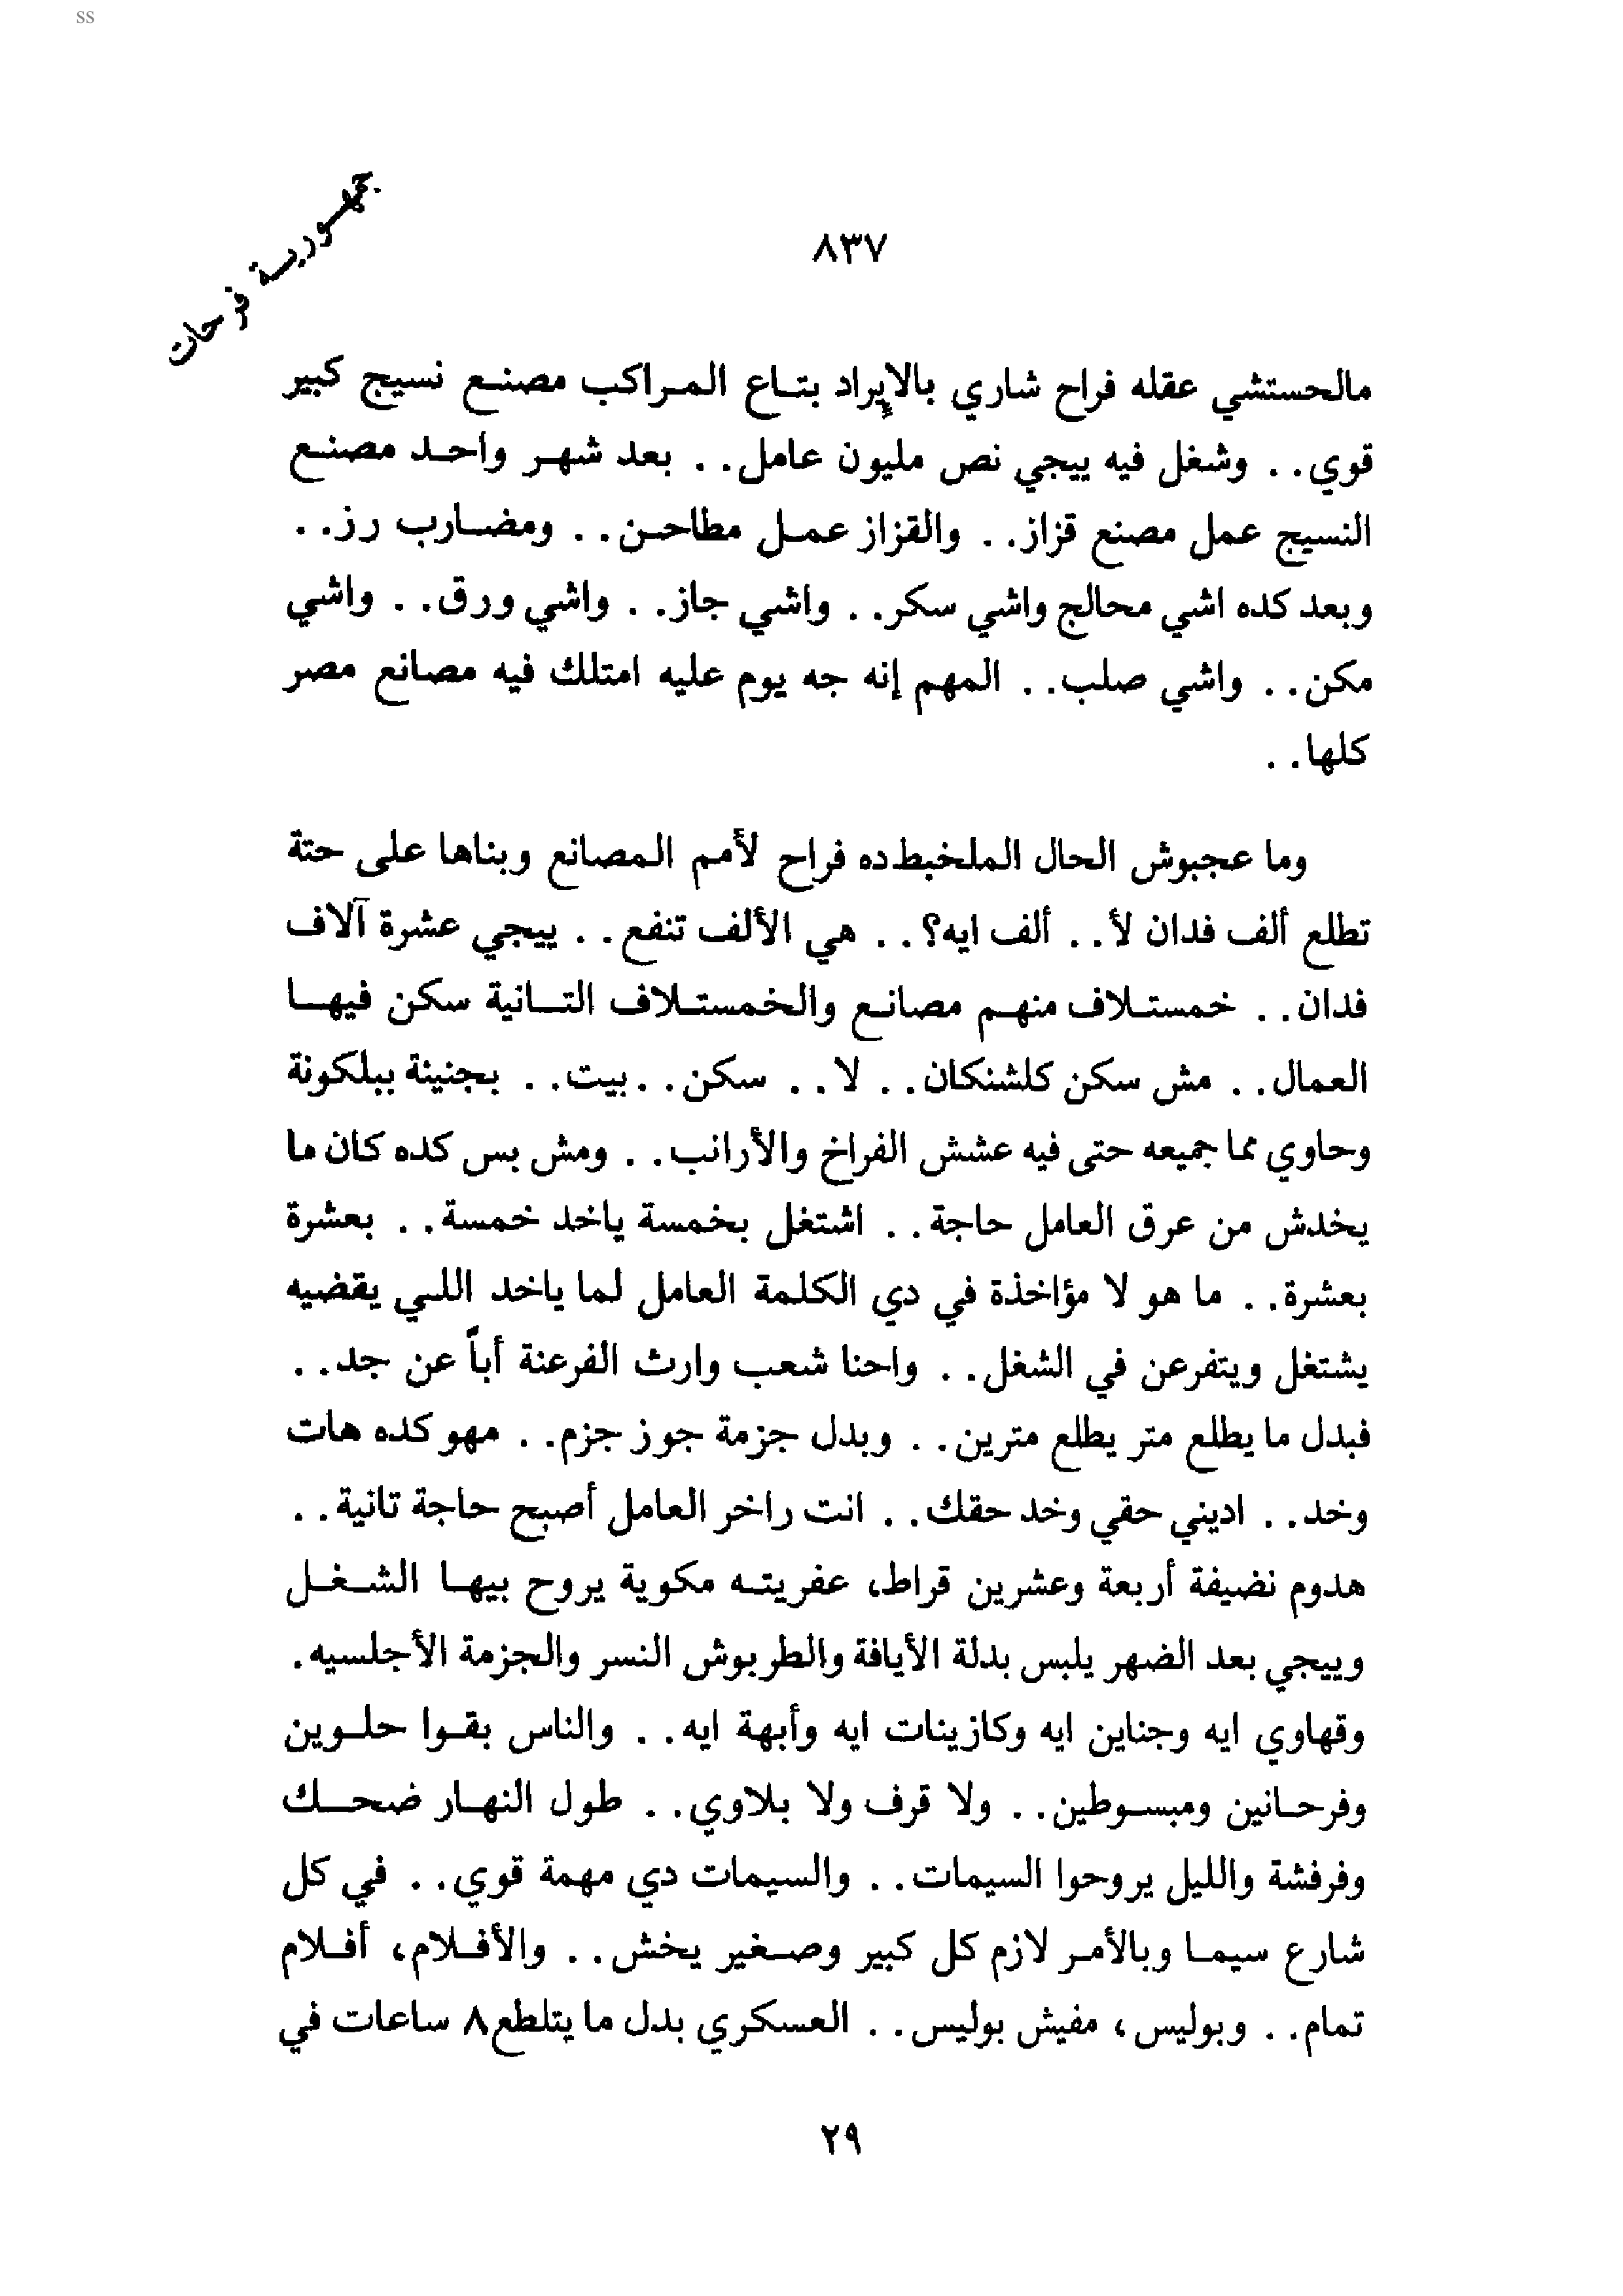 ss
جمهورية فرحات
٨٣٧
مالحستشي عقله فراح شاري بالإيراد بتاع المراكب مصنع نسيج كبير
قوي.. وشغل فيه ييجي نص مليون عامل.. بعد شهر واحد مصنع
النسيج عمل مصنع قزاز.. والقزاز عمل مطاحن.. ومضارب رز..
وبعد كده اشي محالج واشي سكر.. واشي جاز.. واشي ورق.. واشي
مكن.. واشي صلب.. المهم إنه جه يوم عليه امتلك فيه مصانع مصر
كلها..
وما عجبوش الحال الملخبط ده فراح لأمم المصانع وبناها على حتة
تطلع ألف فدان لأ.. ألف ايه؟.. هي الألف تنفع.. ييجي عشرة آلاف
فدان.. خمستلاف منهم مصانع والخمستلاف التانية سكن فيها
العمال.. مش سكن كلشنكان.. لا.. سكن.. بيت.. بجنينة ببلكونة
وحاوي مما جميعه حتى فيه عشش الفراخ والأرانب.. ومش بس كده كان ما
يخدش من عرق العامل حاجة.. اشتغل بخمسة ياخد خمسة.. بعشرة
بعشرة.. ما هو لا مؤاخذة في دي الكلمة العامل لما ياخد اللي يقضيه
يشتغل ويتفرعن في الشغل.. واحنا شعب وارث الفرعنة أباً عن جد..
فبدل ما يطلع متر يطلع مترين.. وبدل جزمة جوز جزم.. مهو كده هات
وخد.. اديني حقي وخد حقك.. انت راخر العامل أصبح حاجة تانية..
هدوم نضيفة أربعة وعشرين قراط، عفريته مكوية يروح بيها الشغل
وييجي بعد الضهر يلبس بدلة الأيافة والطربوش النسر والجزمة الأجلسيه.
وقهاوي ايه وجناين ايه وكازينات ايه وأبهة ايه.. والناس بقوا حلوين
وفرحانين ومبسوطين.. ولا قرف ولا بلاوي.. طول النهار ضحك
وفرفشة والليل يروحوا السيمات.. والسيمات دي مهمة قوي.. في كل
شارع سيما وبالأمر لازم كل كبير وصغير يخش.. والأفلام، أفلام
تمام.. وبوليس، مفيش بوليس.. العسكري بدل ما يتلطع ٨ ساعات في
٢٩